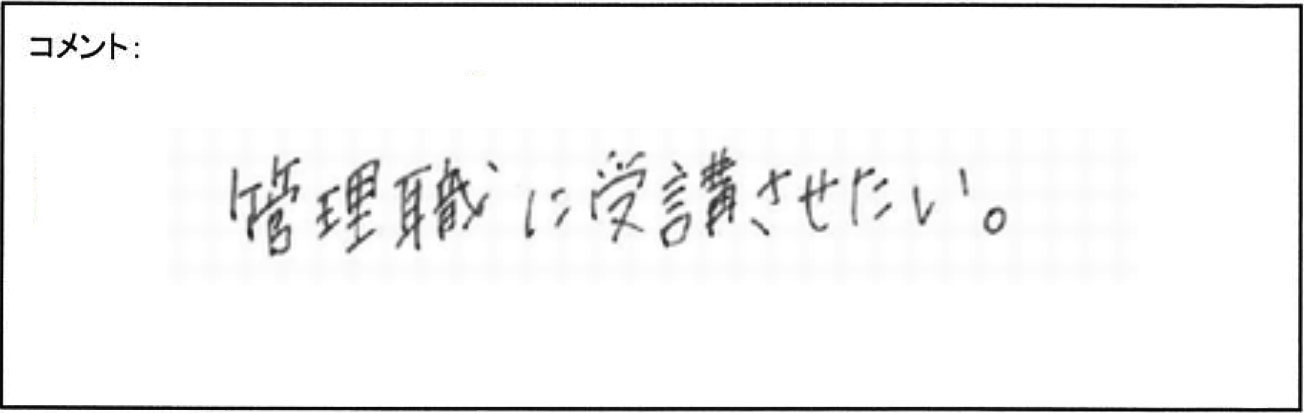 コメント:
管理職に受講させたい。